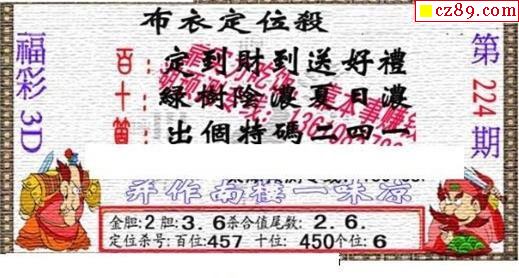 cz89.com
布衣定位殺
福彩3D
第224期
百: 定到財到送好禮
十: 綠樹陰濃夏日濃
個: 出個特碼二四一
弄作南樓一味凉
金胆:2胆:3.6杀合值尾数:2.6.
定位杀号:百位:457 十位:450个位:6